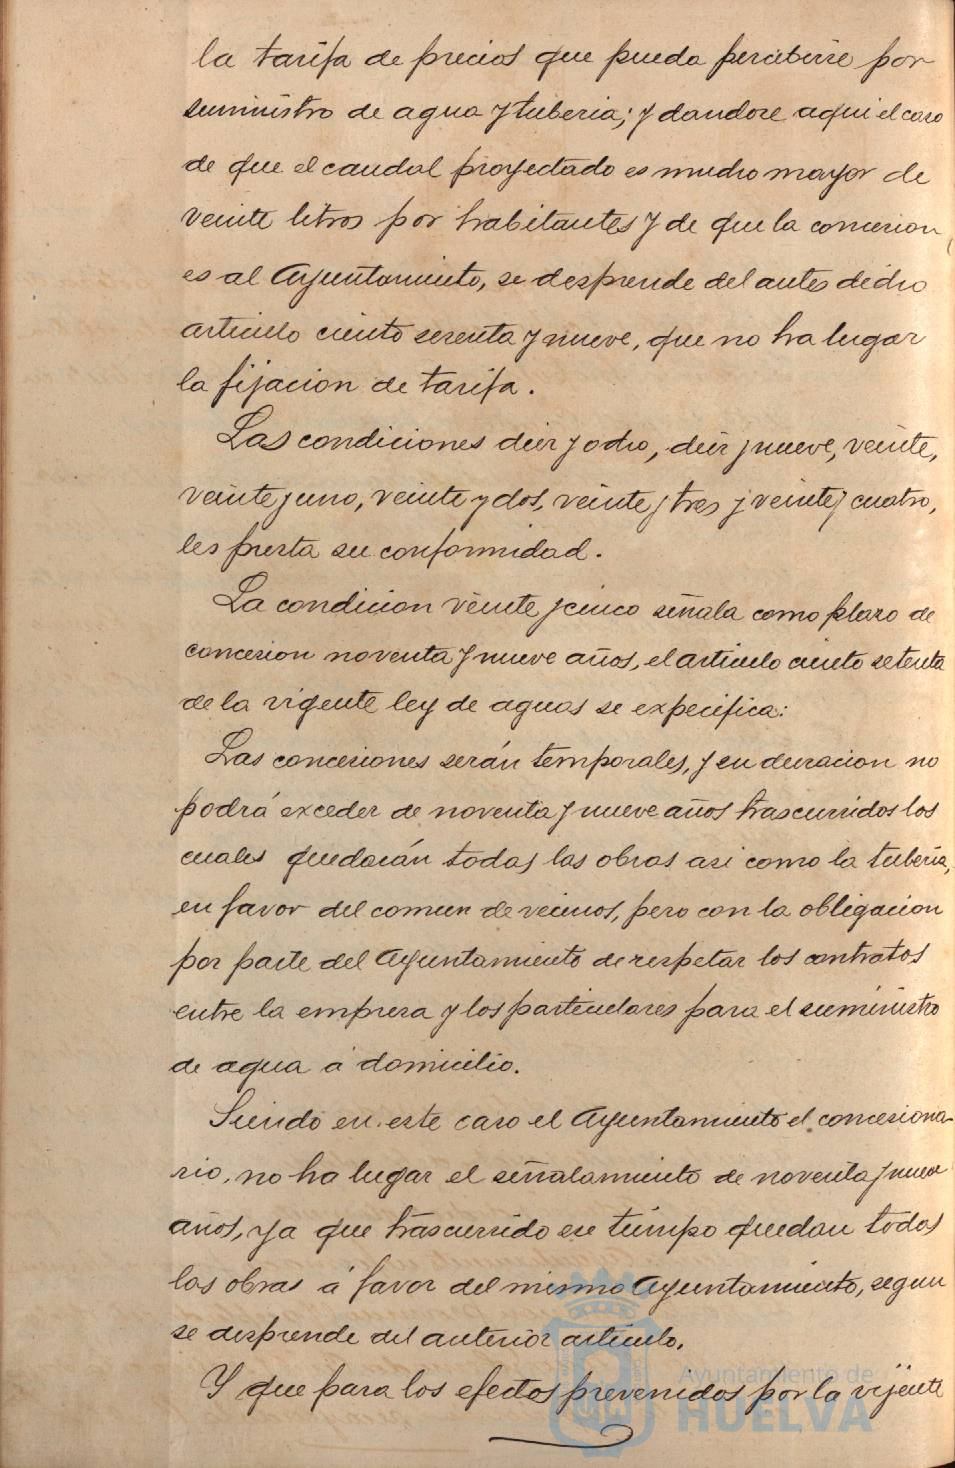 la tarifa de precios que pueda percibirse por
suministro de agua y tuberia; y dandose aqui el caso
de que el caudal proyectado es mucho mayor de
veinte litros por habitantes y de que la concesion
es al Ayuntamiento, se desprende del antes dicho
articulo ciento sesenta y nueve, que no ha lugar
la fijacion de tarifa.
Las condiciones diez y ocho, diez y nueve, veinte,
veinte y uno, veinte y dos, veinte y tres y veinte y cuatro,
les presta su conformidad.
La condicion veinte y cinco señala como plazo de
concesion noventa y nueve años, el articulo ciento setenta
de la vigente ley de aguas se expecifica:
Las concesiones serán temporales, y su duracion no
podrá exceder de noventa y nueve años trascurridos los
cuales quedarán todas las obras asi como la tuberia,
en favor del comun de vecinos, pero con la obligacion
por parte del Ayuntamiento de respetar los contratos
entre la empresa y los particulares para el suministro
de agua á domicilio.
Siendo en este caso el Ayuntamiento el concesiona-
rio, no ha lugar el señalamiento de noventa y nueve
años, ya que trascurrido ese tiempo quedan todas
las obras á favor del mismo Ayuntamiento, segun
se desprende del anterior articulo.
Y que para los efectos prevenidos por la vijente
Ayuntamiento de
HUELVA